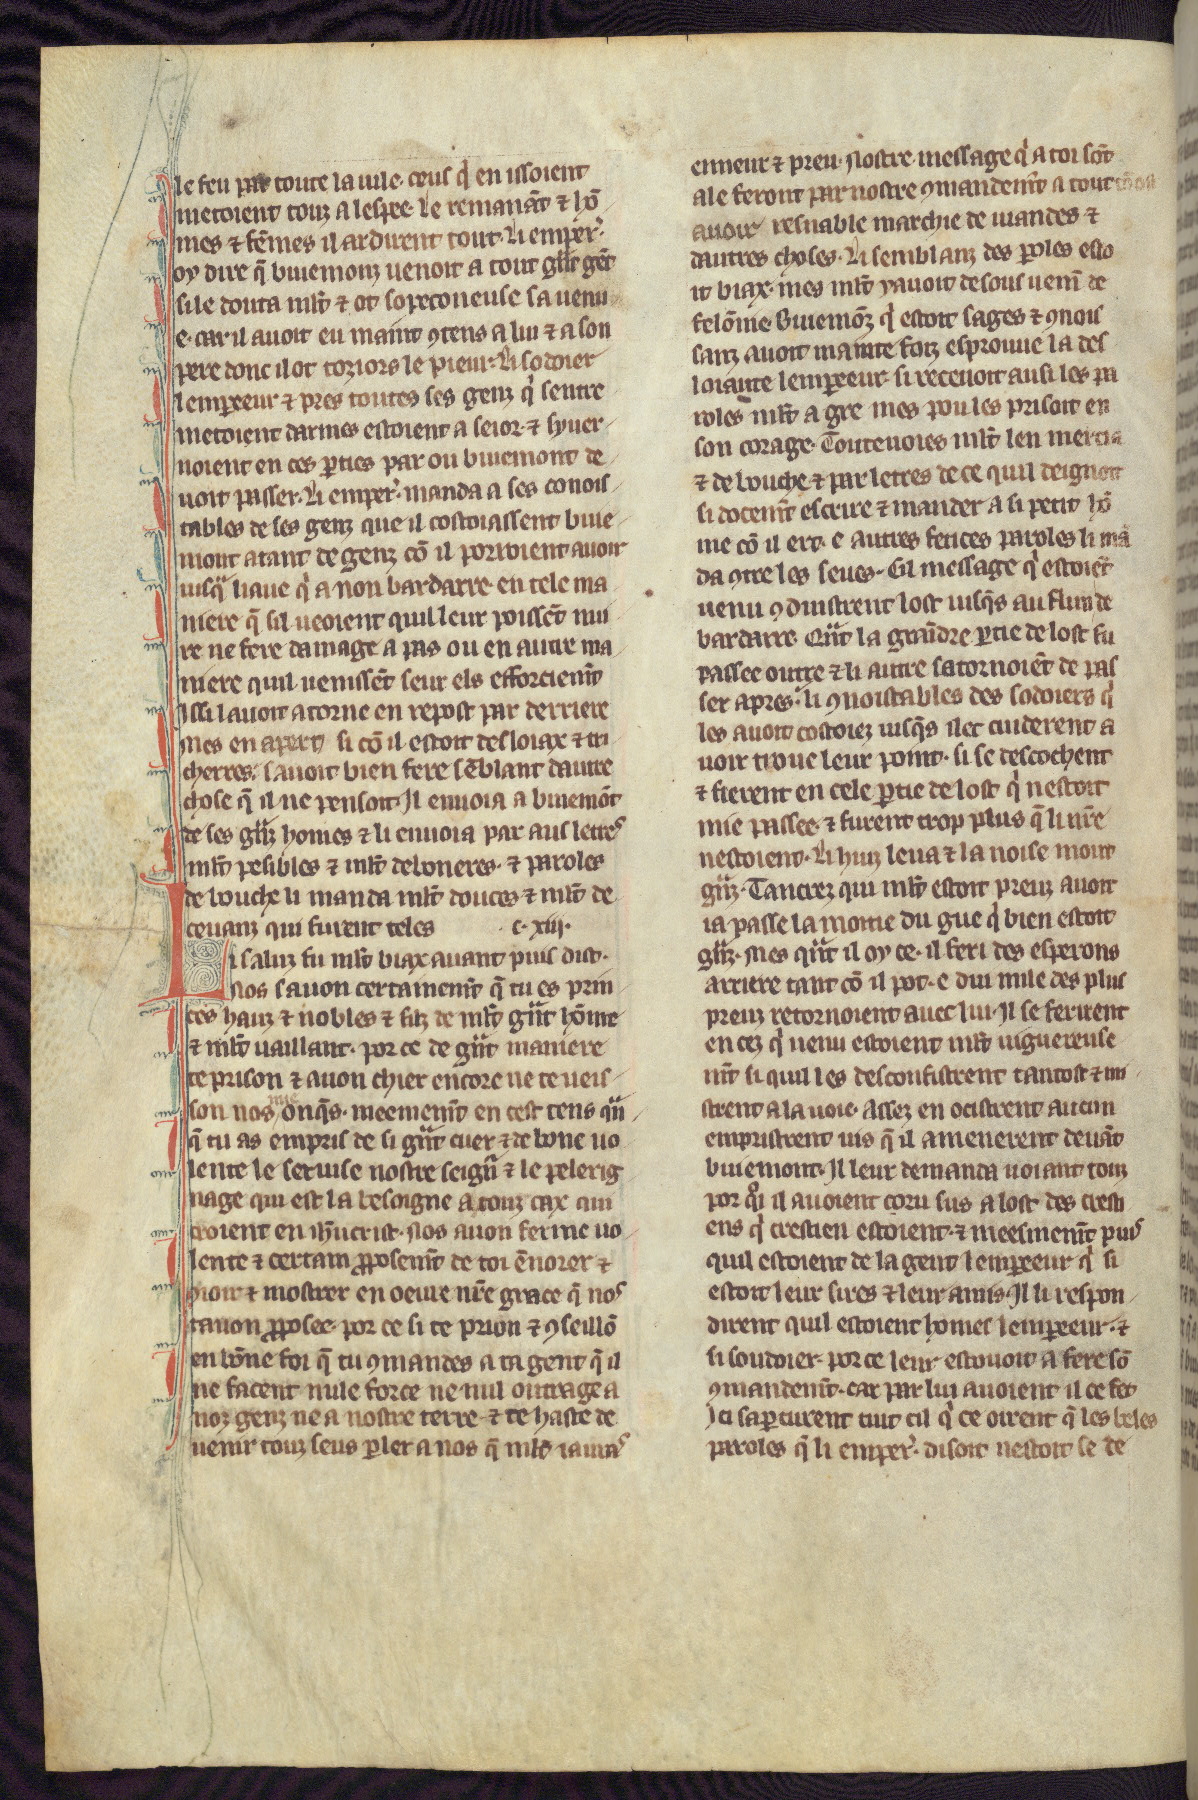 le feu par toute la uile. ceus q̇ en issoient
metoient touz a lespee. Le remanāt ⁊ hō
mes ⁊ fēmes il ardirent tout. Li emper̉.
oy dire q̄ buiemonz uenoit a tout gͣnt gēt
si le douta ml̃t ⁊ ot sopeconeuse sa uenu
e. car il auoit eu maint ꝯtens a lui ⁊ a son
pere donc il ot toziors le pieur. Li sodoier
lempereeur ⁊ pres toutes ses genz q̇ sentre
metoient darmes estoient a seior. ⁊ hyuer
noient en ces ꝑties par ou buiemont de
uoit passer. Li emper̉. manda a ses conois
tables de ses genz que il costoiassent buie
mont atant de genz cō il porroient auoir
iusqͣ liaue q̇ a non bardarre. en tele ma
niere q̄ sil ueoient quil leur poissēt nui
re ne fere damage a pas ou en autre ma
niere quil uenissēt seur els efforciem̄t
Issi lauoit atorne en repost par derriere
Mes en apert si cō il estoit desloiax ⁊ tri
cherres. sauoit bien fere sēblant dautre
chose q̄ il ne pensoit. Il enuoia a buiemōt
de ses gͣnz homes ⁊ li enuoia par aus letreˢ
ml̃t pesibles ⁊ ml̃t deboneres. ⁊ paroles
de bouche li manda ml̃t douces ⁊ ml̃t de
ceuanz qui furent teles c. xiii.
i saluz fu ml̃t biax auant puis dist.
Nos sauon certainem̄t q̄ tu es prin
ces hauz ⁊ nobles ⁊ fiz de ml̃t gͣnt hōme
⁊ ml̃t uaillant. por ce de gͣnt maniere
te prison ⁊ auon chier encore ne te ueis
son nos mie onq̄s. meemem̄t en cest tens qͣn
q̄ tu as empris de si gͣnt cuer ⁊ de bone uo
lente le seruise nostre seigñ ⁊ le pelerig
nage qui est la besoigne a touz cax qui
croient en ih̄ucrist. Nos auon ferme uo
lente ⁊ certain ꝓposem̄t de toi ēnorer ⁊
⁊ mostrer en oeure nr̄e grace q̄ noˢ
tauon ꝓposee. por ce si te prion ⁊ ꝯseillō
en bōne foi q̄ tu ꝯmandes a ta gent q̄ il
ne facent nule force ne nul outrage a
noz genz ne a nostre terre. ⁊ te haste de
uenir touz seus ꝑler a nos q̄ ml̃t i auraˢ
enneur ⁊ preu. Nostre message q̇ a toi sōt
ale feront par nostre ꝯmandem̄t a tout
auoir resnable marchie de uiandes ⁊
dautres choses. Li semblanz des ꝑoles esto
it biax. mes ml̃t yauoit desous uenī de
felōnie. Buiemōz q̇ estoit sages ⁊ ꝯnois
sanz auoit mainte foiz esprouue la des
loiaute lempereeur. si receuoit ausi les pa
roles ml̃t a gre mes pou les prisoit en
son corage. Toutesuoies ml̃t len mercia
⁊ de bouche ⁊ par letres de ce quil deignoit
si docem̄t escrire ⁊ mander a si petit hō
me cō il ert. e autres feintes paroles li mā
da ꝯtre les seues. Cil message q̇ estoiēt
uenu ꝯduistrent lost iusq̄s au flun de
bardarre. Qͣnt la greīdre ꝑtie de lost fu
passee outre ⁊ li autre satornoiēt de pas
ser apres. li ꝯnoistables des sodoiers q̇
les auoit costoiez iusq̄s ilec cuiderent a
uoir troue leur point. si se descochent
⁊ fierent en cele ꝑtie de lost q̇ nestoit
mie passee. ⁊ furent trop plus q̄ li nr̄e
nestoient. Li huz leua ⁊ la noise mont
gͣnz. Tancrez qui ml̃t estoit preuz auoit
ia passe la moitie du gue q̇ bien estoit
gͣnz. Mes qͣnt il oy ce. il feri des esperons
arriere tant cō il pot. e dui mile des plus
preuz retornoient auec lui. Il se ferirent
en cez q̇ uenu estoient ml̃t uiguereuse
m̄t si quil les desconfistrent tantost ⁊ mi
strent a la uoie. Assez en ocistrent aucun
empristrent uis q̄ il amenerent deuāt
buiemont. Il leur demanda uoiant touz
por qͦi il auoient coru sus a lost des cresti
ens q̇ crestien estoient. ⁊ meesmem̄t puiˢ
quil estoient de la gent lempereeur q̇ si
estoit leur sires ⁊ leur amis. Il li respon
dirent quil estoient homes lempereeur. ⁊
si soudoier. por ce leur estouoit a fere sō
ꝯmandem̄t. car par lui auoient il ce fet
Ici saꝑcurent tuit cil q̇ ce oirent q̄ les beles
paroles q̄ li emper̉. disoit nestoit se de